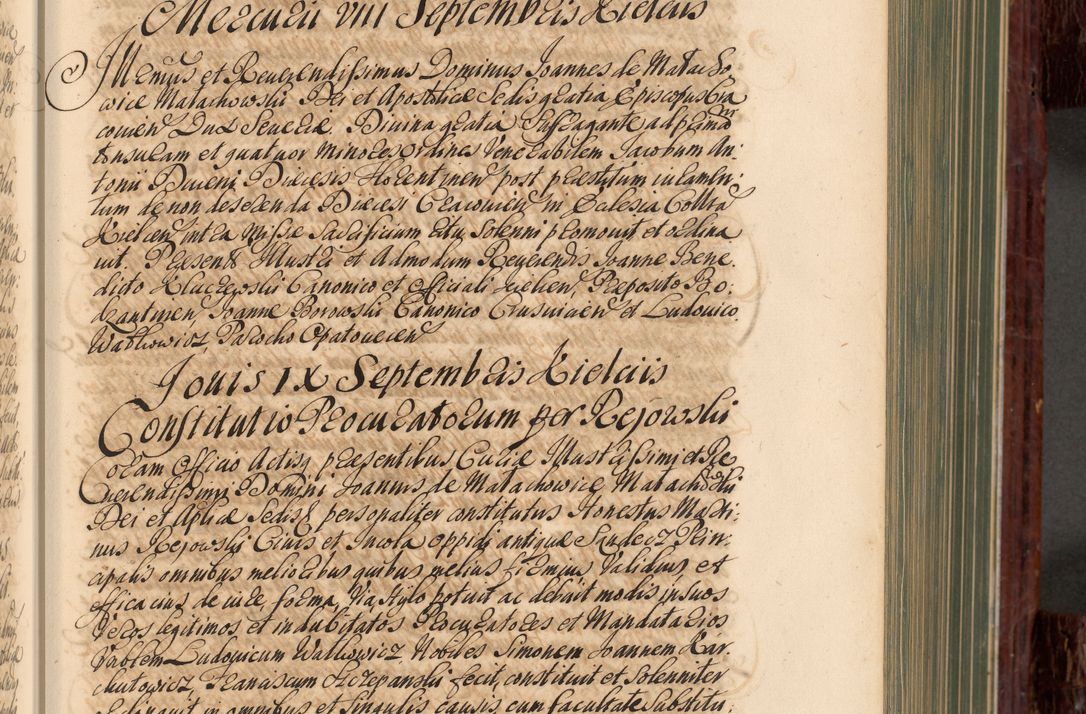 Mercurii VIII Septembris Kielciis
Illmus et Reverendissimus Dominus Joannes de Małacho
wice Małachowski Dei et Apostolicæ Sedis gratia Episcopus Cra
covien Dux Severiæ. Divina gratia Suffragante ad primã
tonsuram et quatuor minores ordines Venerabilem Jacobum An:
tonii Diœcesis post præstitum iuramen:
tum de non deserenda Diœcesi Cracovien in Eccłesia Colłta
Kielcen intra Missæ Sacrificium ritu Solenni promovit et ordina
vit. Præsent Illustri et Admodum Reverendis Joanne Bene.
dicto Canonico et Officiali Kielcen, Præposito Bo.
dzantinen, Joanne Borowski Canonico Crusvicien et Ludovico
Walkowicz, Parocho Opatovicen
Jovis IX Septembris Kielciis
Constitutio Procuratorum per Rejowski
Coram Officio Actisq præsentibus Curiæ Illustrissimi et Re
verendissimi Domini Joannis de Małachowice Małachowski
Dei et Aplicæ Sedis & personaliter constitutus Honestus Marti:
nus Rejowski Civis et Incola oppidi antiquæ Prin
cipalis omnibus melioribus quibus melius firmius, Validius, et
efficacius de iure, forma, Via stylo potuit ac debuit modis in suos
Veros legitimos et indubitatos Procuratores et Mandatarios
Vnblem Ludovicum Walkowicz, Nobiles Simonem Joannem Kar
chutowicz, Franciscum Szczepanski fecit, constituit et Solenniter
ordinavit in omnibus et singulis causis, cum facultate Substitu: